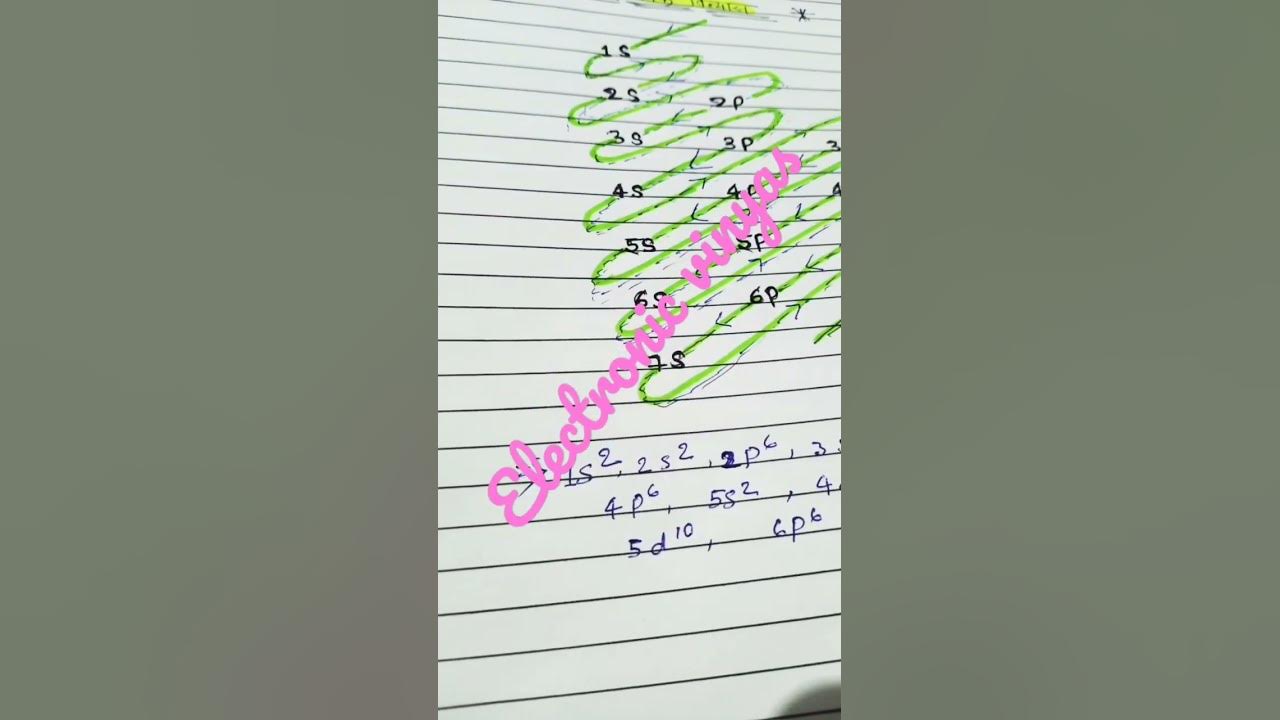 *
1s
2s 2p
3s 3p 3
4s 4p 4
5s 5p
6s 6p
7s
Electronic vinyas
→ 1s², 2s², 2p⁶, 3s
4p⁶, 5s², 4
5d¹⁰, 6p⁶